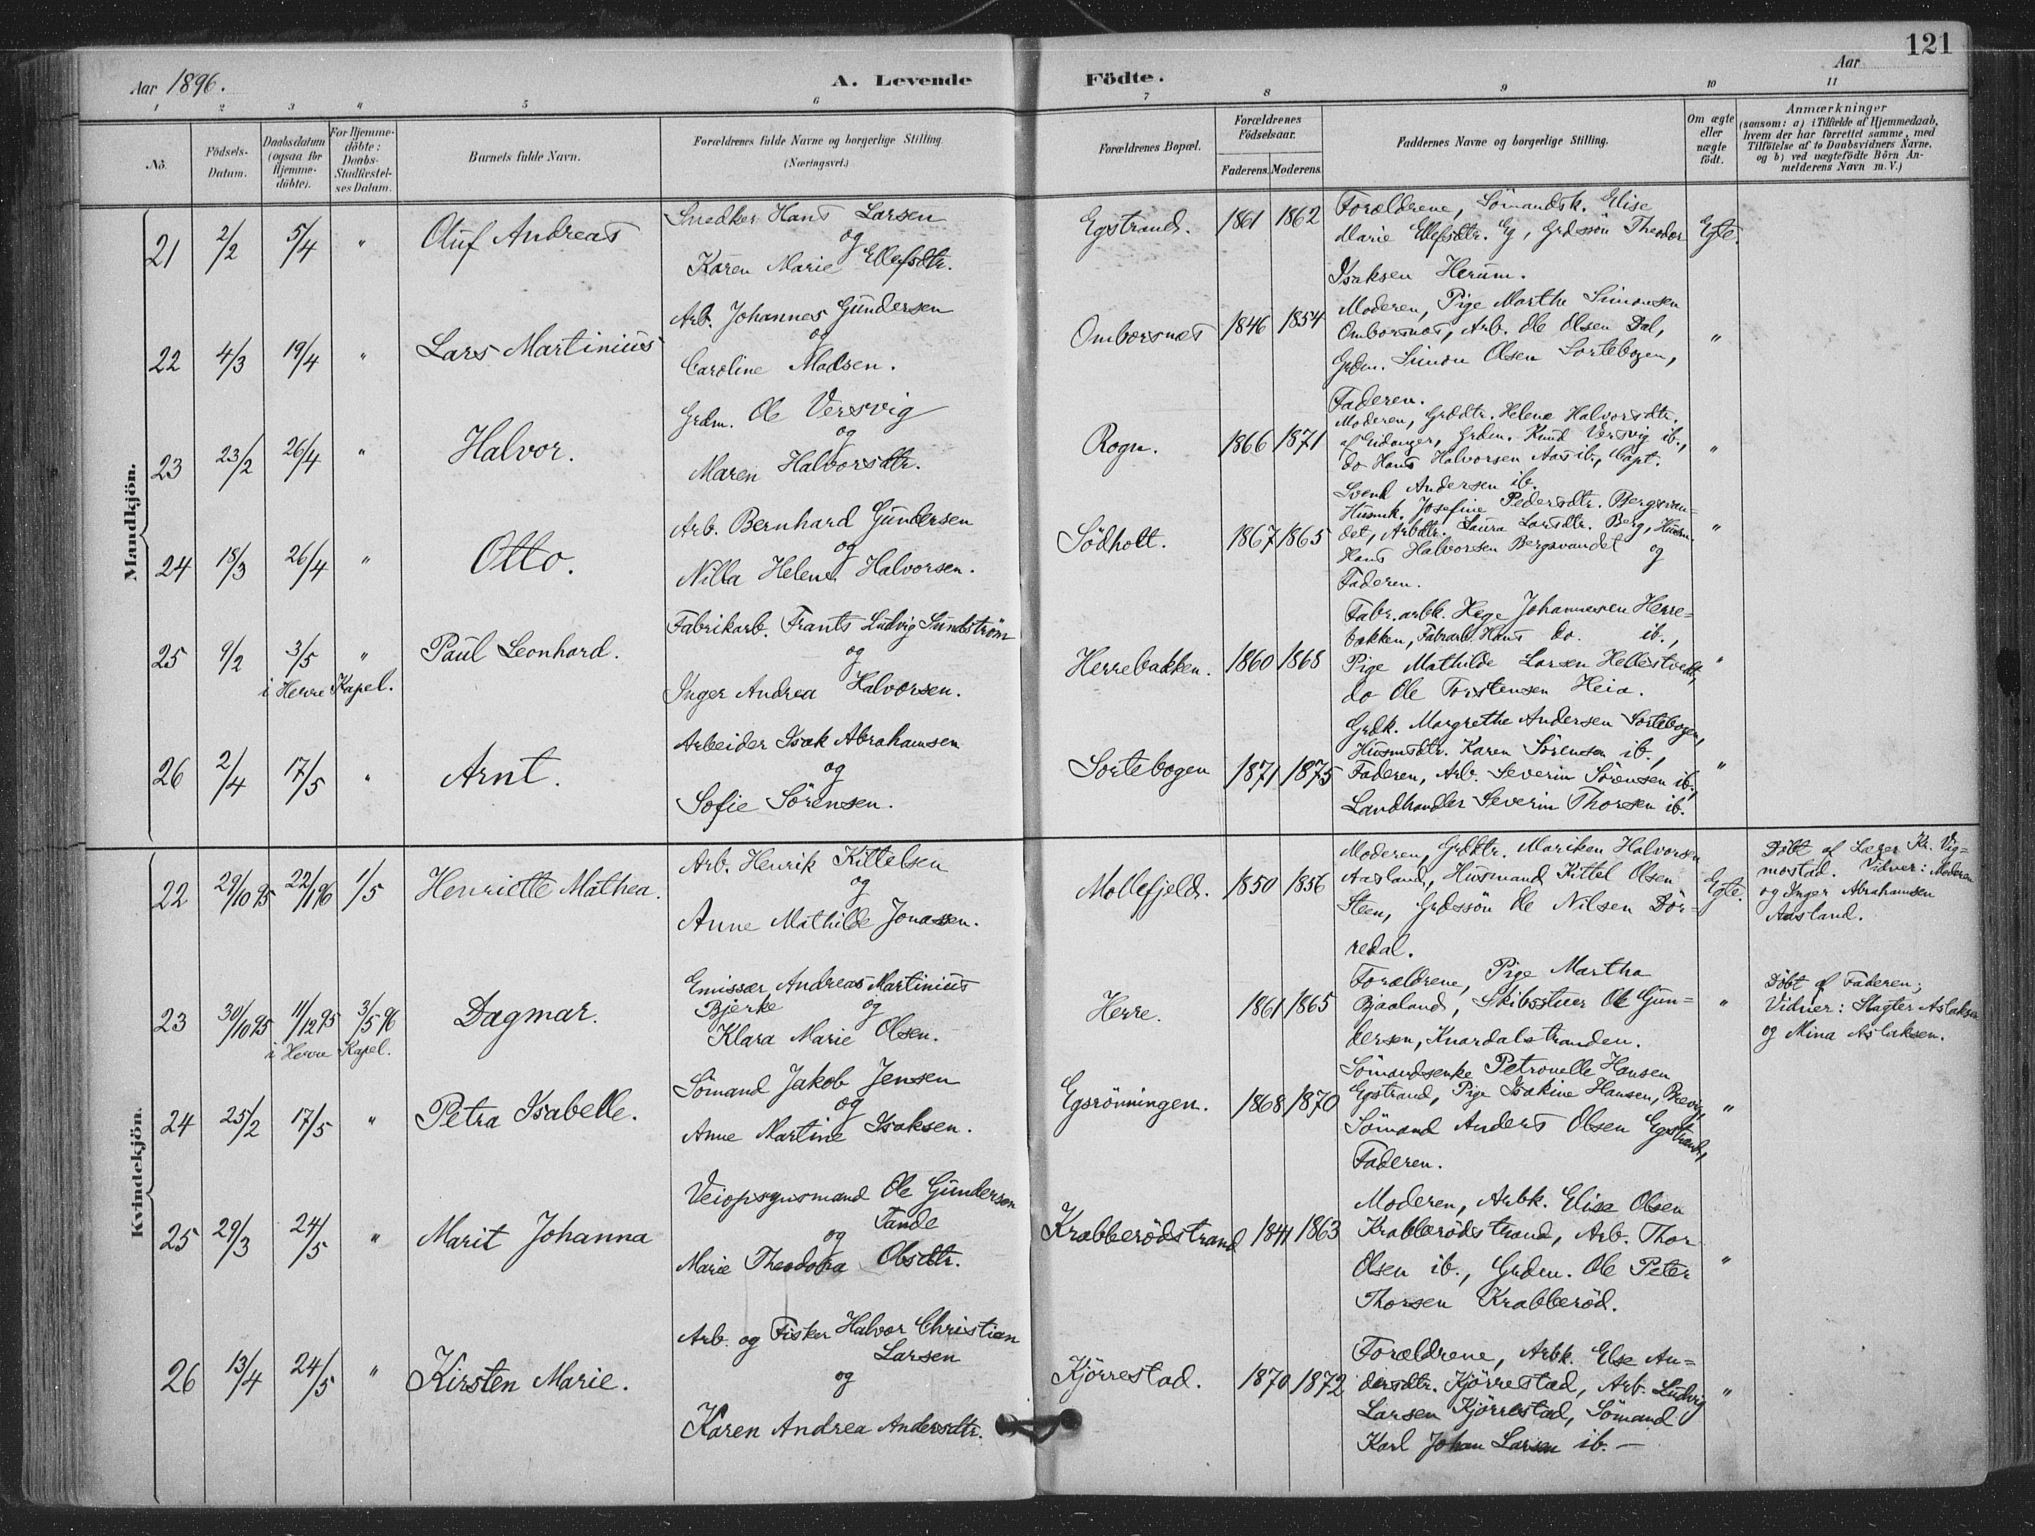 121
Aar 1896.
A. Levende Födte.
Aar
1 2 3 " 5 6 7 8 9 10 11
No.
Födsels-Datum.
Daabsdatum (ogsaa for Hjemmedöbte).
For Hjemmedöbte: Daabs-Stadfæstelses Datum.
Barnets fulde Navn.
Forældrenes fulde Navne og borgerlige Stilling (Næringsvei.)
Forældrenes Bopæl.
Forældrenes Födselsaar.
Faderens. Moderens.
Faddernes Navne og borgerlige Stilling.
Om ægte eller uægte født.
Anmærkninger
(saasom: a) i Tilfælde af Hjemmedaab, hvem der har forrettet samme, med Tilföielse af to Daabsvidners Navne, og b) ved uægtefödte Börn Anmelderens Navn m. V.)
Mandkjön.
21 2/2 5/4 " Oluf Andreas
Snedker Hans Larsen
og
Karen Marie Ellefsdtr.
Egstrand. 1861 1862
Forældrene, Sömandsk. Elise
Marie Ellefsdtr. Eg, Grdssön Theodor
Isaksen Herum.
Egte.
22 4/3 19/4 " Lars Martinius
Arb. Johannes Gundersen
og
Caroline Madsen.
Omborsnes 1846 1854
Moderen, Pige Marthe Simonsen
Omborsnes, Arb. Ole Olsen Dal,
Grdm. Simon Olsen Sortebogen,
Faderen.
"
23 23/2 26/4 " Halvor.
Grdm. Ole Versvig
og
Maren Halvorsdtr.
Rogn. 1866 1871
Moderen, Grddtr. Helene Halvorsdtr.
af Eidanger, Grdm. Knud Versvig ib.,
do Hans Halvorsen Aas ib., Capt.
Svend Andersen ib.
"
24 18/3 26/4 " Otto.
Arb. Bernhard Gundersen
og
Nilla Helene Halvorsen.
Södholt. 1867 1865
Husmk. Josefine Pedersdtr. Bergsvan-
det, Arbdtr. Laura Larsdtr. Berg, Husm.
Hans Halvorsen Bergsvandet og
Faderen.
"
25 9/2 3/5 " Paul Leonhard.
i Herre Kapel.
Fabrikarb. Frants Ludvig Sundström
og
Inger Andrea Halvorsen.
Herrebakken. 1860 1868
Fabr.arbk. Hege Johannesen Herre-
bakken, Fabrarb. Hans do. ib.,
Pige Mathilde Larsen Hellestvedt,
do Ole Torstensen Heia.
"
26 2/4 17/5 " Arnt.
Arbeider Isak Abrahamsen
og
Sofie Sörensen.
Sortebogen 1871 1875
Grdk. Margrethe Andersen Sortebogen,
Husmdtr. Karen Sörensen ib.,
Faderen, Arb. Severin Sörensen ib.,
Landhandler Severin Thorsen ib.
"
Kvindekjön.
22 29/10 95 22/1 96 1/5 Henriette Mathea.
Arb. Henrik Kittelsen
og
Anne Mathilde Jonassen.
Mollefjeld. 1850 1856
Moderen, Grddtr. Mariken Halvorsen
Aasland, Husmand Kittel Olsen
Steen, Grdssön Ole Nilsen Dör-
redal.
Egte.
Döbt af Lærer Kr. Vig-
mostad. Vidner: Moderen
og Inger Abrahamsen
Aasland.
23 30/10 95 11/12 95 3/5 96 Dagmar.
i Herre Kapel.
Emissær Andreas Martinius
Bjerke og
Klara Marie Olsen.
Herre. 1861 1865
Forældrene, Pige Martha
Bjaaland, Skibsstuer Ole Gun-
dersen, Knardalstranden.
"
Döbt af Faderen;
Vidner: Slagter Aslaksen
og Mina Aslaksen.
24 25/2 17/5 " Petra Isabelle.
Sömand Jakob Jensen
og
Anne Martine Isaksen.
Egsrönningen. 1868 1870
Sömandsenke Petronelle Hansen
Egstrand, Pige Isakine Hansen, Brevig,
Sömand Anders Olsen Egstrand,
Faderen.
"
25 29/3 24/5 " Marit Johanna
Veiopsynsmand Ole Gundersen
Tande
og
Marie Theodora Olsdtr.
Krabberödstrand 1841 1863
Moderen, Arbk. Elise Olsen
Krabberödstrand, Arb. Thor
Olsen ib., Grdm. Ole Peter
Thorsen Krabberöd.
"
26 13/4 24/5 " Kirsten Marie.
Arb. og Fisker Halvor Christian
Larsen
og
Karen Andrea Andersdtr.
Kjörrestad. 1870 1872
Forældrene, Arbk. Else An-
dersdtr. Kjörrestad, Arb. Ludvig
Larsen Kjörrestad, Sömand
Karl Johan Larsen ib. —
"